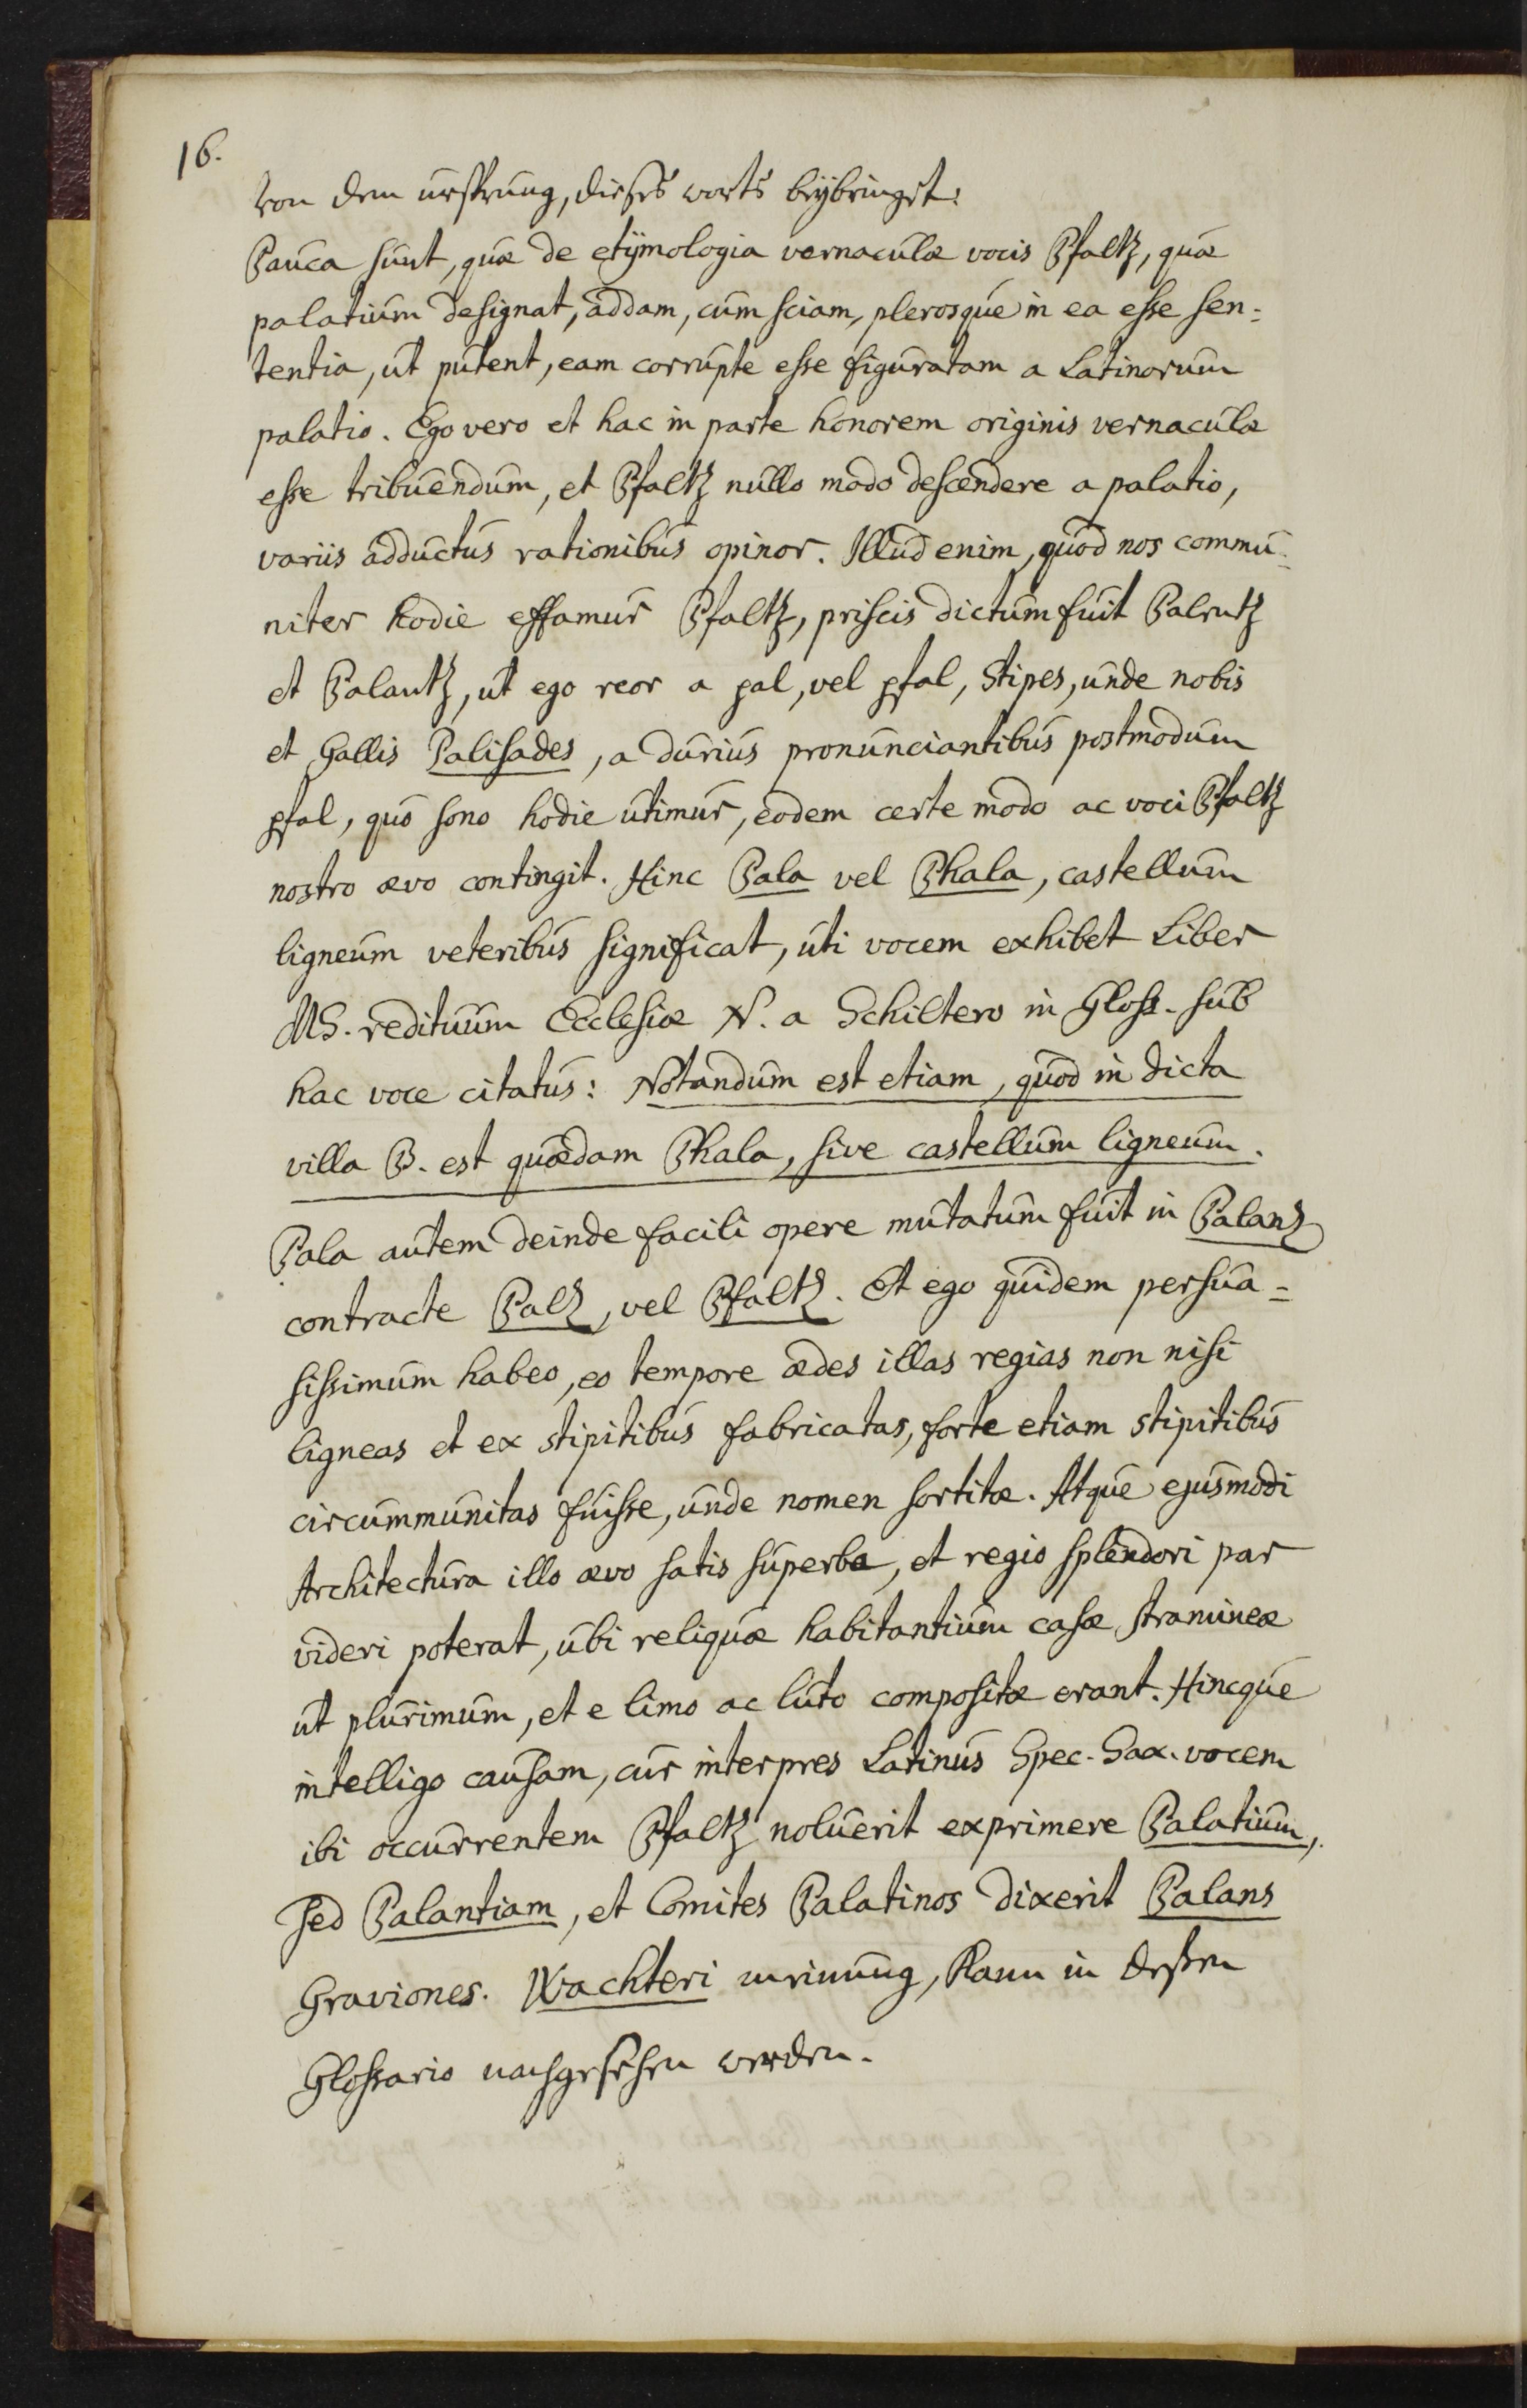 16.
von dem ursprung, dieses worts beybringet:
Pauca sunt, quæ de etymologia vernaculæ vocis Pfaltz, quæ
palatium designat, addam, cum sciam, plerosque in ea esse sen=
tentia, ut putent, eam corrupte esse figuratam a Latinorum
palatio. Ego vero et hac in parte honorem originis vernaculæ
esse tribuendum, et Pfaltz nullo modo descendere a palatio,
variis adductus rationibus opinor. Illud enim, quod nos commu=
niter hodie effamur Pfaltz, priscis dictum fuit Palentz
et Palantz, ut ego reor a pal, vel pfal, stipes, unde nobis
et Gallis Palisades, a durius pronunciantibus postmodum
pfal, quo sono hodie utimur, eodem certe modo ac voci Pfaltz
nostro ævo contingit. Hinc Pala vel Phala, castellum
ligneum veteribus significat, uti vocem exhibet Liber
MS. redituum Ecclesiæ N. a Schiltero in Gloss. sub
hac voce citatus: Notandum est etiam, quod in dicta
villa B. est quædam Phala, sive castellum ligneum.
Pala autem deinde facili opere mutatum fuit in Palanz
contracte Palz, vel Pfaltz. Et ego quidem persua=
sissimum habeo, eo tempore ædes illas regias non nisi
ligneas et ex stipitibus fabricatas, forte etiam stipitibus
circummunitas fuisse, unde nomen sortitæ. Atque ejusmodi
Architectura illo ævo satis superba, et regio splendori par
videri poterat, ubi reliquæ habitantium casæ stramineæ
ut plurimum, et e limo ac luto compositæ erant. Hincque
intelligo causam, cur interpres Latinus Spec. Sax. vocem
ibi occurrentem Pfaltz noluerit exprimere Palatium,
sed Palantiam, et Comites Palatinos dixerit Palans
Graviones. Wachteri meinung, kann in deßen
Glossario nachgesehen werden.